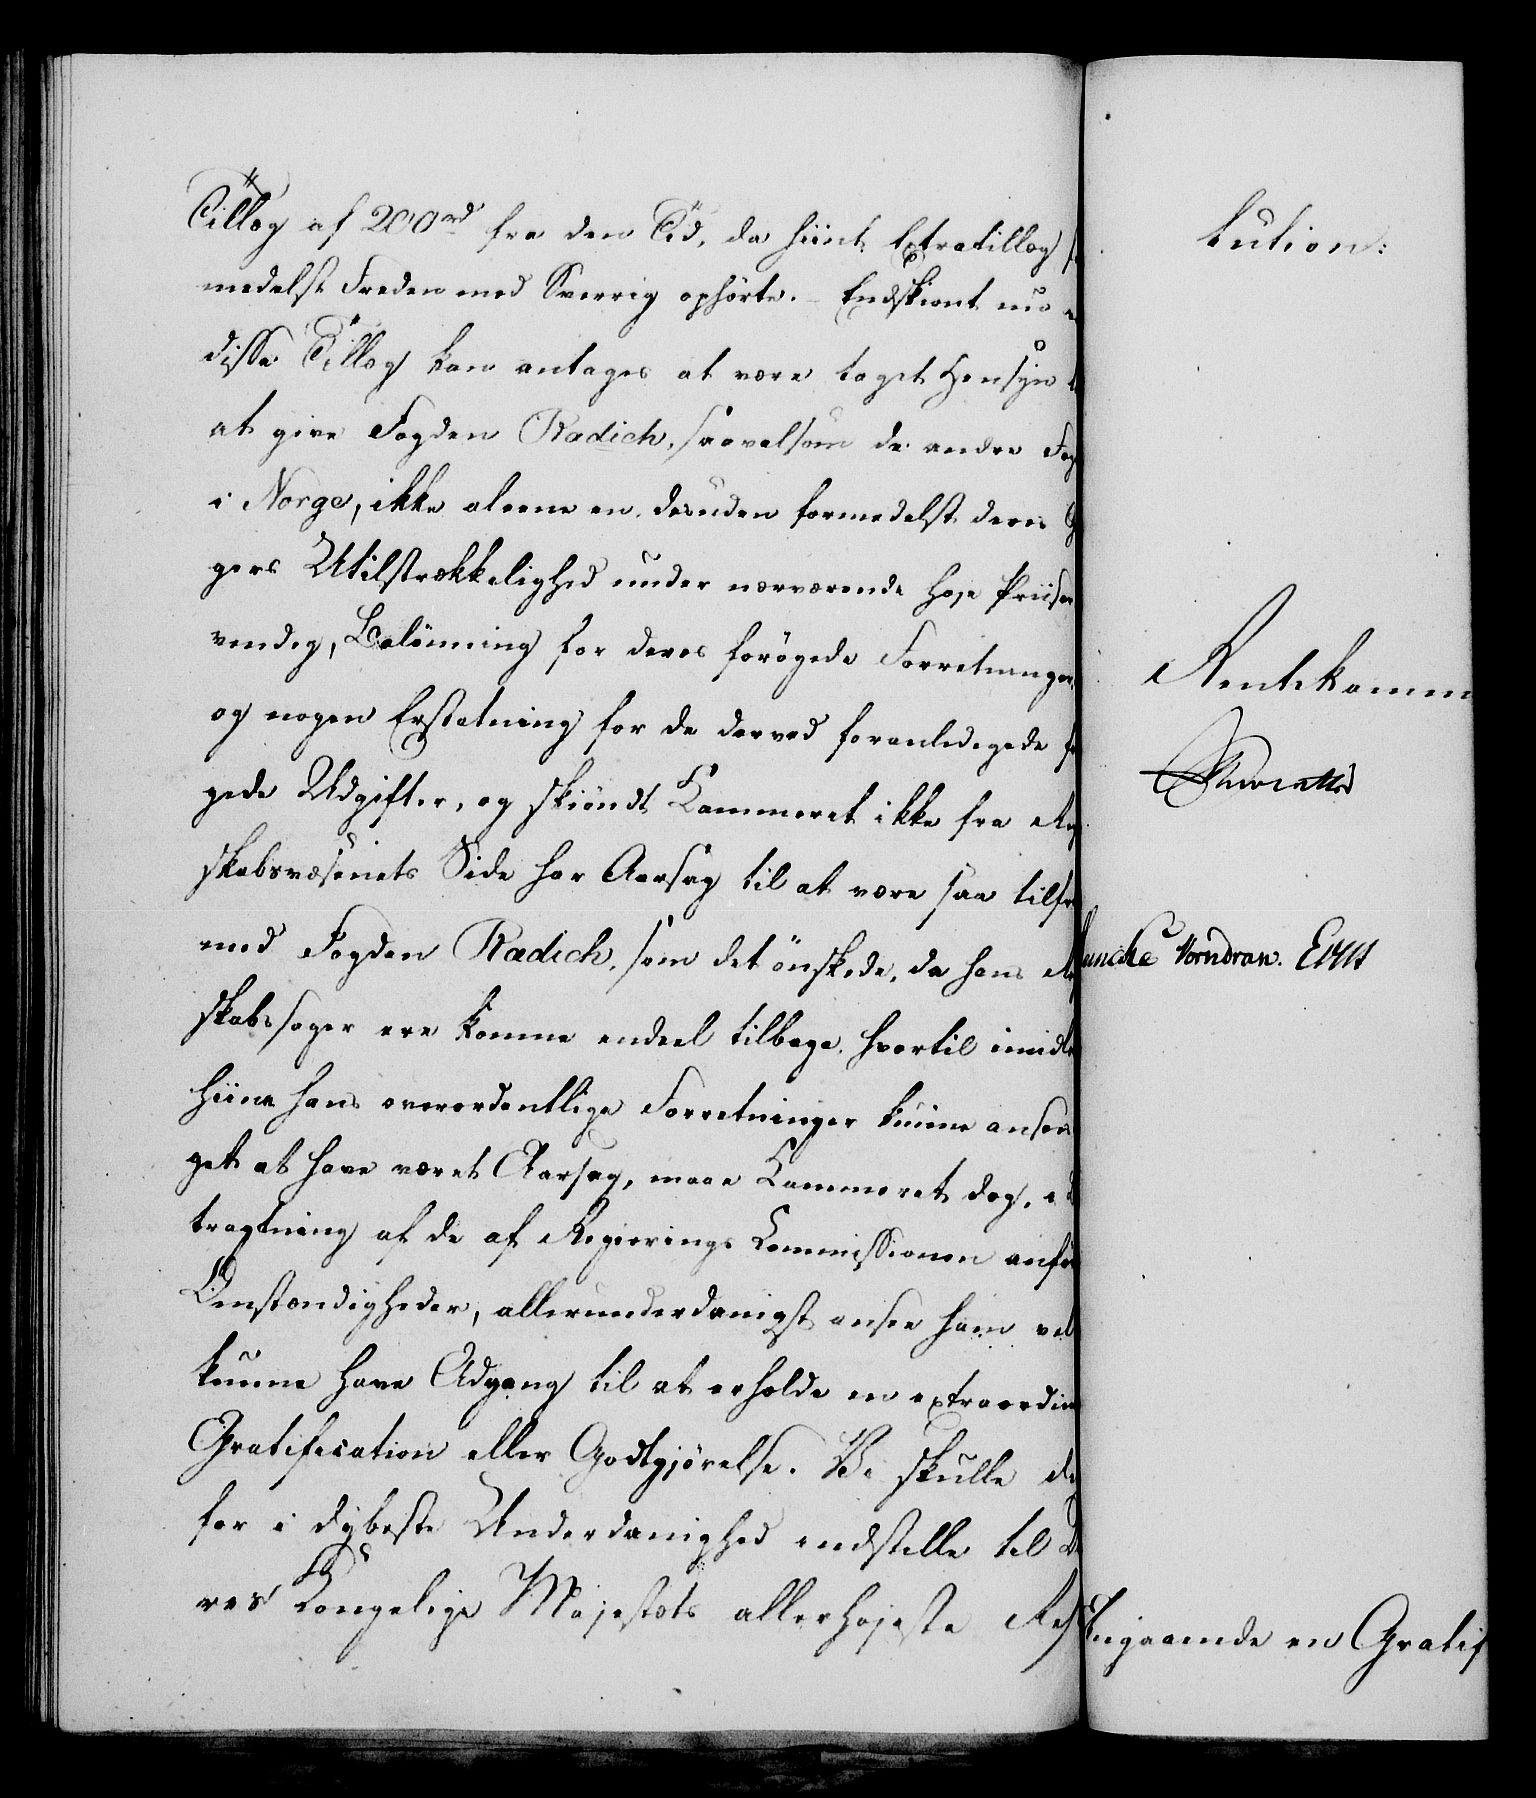 Tillæg af 200rd fra den Tid, da hiint Extratillæg
medelst Freden med Sverrig ophørte. Endskiønt nu
disse Tillæg kan antages at være taget Hensyn
at give Fogden Radich, saavelsom de andre Fog
i Norge, ikke aleene en, desuden formedelst deres
gers Utilstrækkelighed under nærværende høje Priiser
vendig, Belønning for deres forøgede Forretninger,
og nogen Erstatning for de derved foranledigede
gede Udgifter, og skiøndt Kammeret ikke fra Reg
skabsvæsenets Side har Aarsag til at være saa tilfr
med Fogden Radich, som det ønskede, da hans Reg
skabssager ere komne endeel tilbage, hvortil imidle
hiine hans overordentlige Forretninger kunne ansees
get at have været Aarsag, maae Kammeret dog, i
tragtning af de af Regierings Commissionen anfør
Omstændigheder, allerunderdanigst ansee ham vel
kunne have Adgang til at erholde en extraordin
Gratification eller Godtgjørelse. Vi skulle de
for i dybeste Underdanighed indstille til De
res Kongelige Majestæts allerhøjeste Reso
lution:
Rentekamm
Vorndran.
Angaaende en Gratif